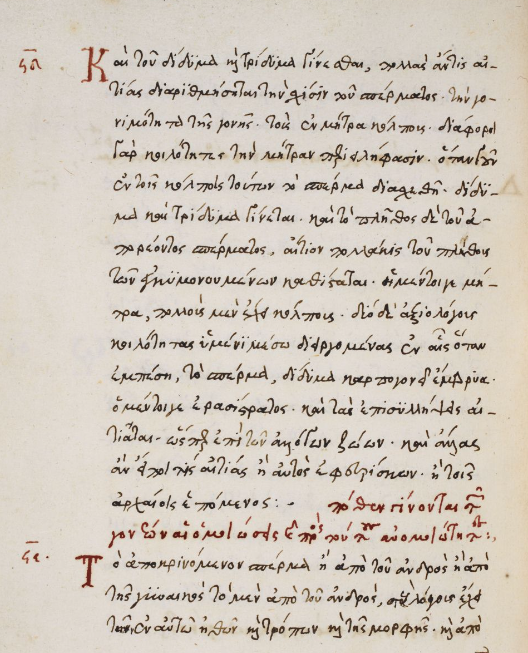 Καὶ τοῦ δίδυμα ἢ τρίδυμα γίνεσθαι, πολλὰς ἄν τις αἰ-
τίας διαριθμήσηται τὴν φύσιν τοῦ σπέρματος· τὴν γο-
νιμότητα τῆς γονῆς· τοὺς ἐν μήτρα κόλποις· διάφοροι
γὰρ κοιλότητες τὴν μήτραν περιειλήφασιν· ὅταν
ἐν τοῖς κόλποις τούτων τὸ σπέρμα διαχεθῆ· δίδυ-
μα καὶ τρίδυμα γίνεται· καὶ τὸ πλῆθος δὲ τοῦ ἀ-
πορέοντος σπέρματος, αἴτιον πολλάκις τοῦ πλήθους
τῶν καθίσαται· ἡ μέντοι γε μή-
τρα, πολλοὺς μὲν ἔχει κόλπους· δύο δὲ ἀξιολόγους
κοιλότητας ὑμένι μέσω διεργομένας ἐν αἷς ὅταν
ἐμπέση, τὸ σπέρμα, δίδυμα καρπογονεῖ ἔμβρυα·
ὁ μέντοι γε ἐρασίστρατος· καὶ τὰς ἐπισυλλήψεις αἰ-
τιᾶται· ὥσπερ ἐπὶ τῶν ἀλόγων ζώων· καὶ ἄλλας
ἂν εἴποι τις αἰτίας ἢ αὐτὸς ἐφευρίσκων· ἢ τοῖς
ἀρχαίοις ἑπόμενος: πόθεν γίνονται τῶν
γονέων αἱ ὁμοιώσεις
Τὸ ἀποκρινόμενον σπέρμα ἢ ἀπὸ τοῦ ἀνδρὸς ἢ ἀπὸ
τῆς γυναικὸς τὸ μὲν ἀπὸ τοῦ ἀνδρὸς, λόγους ἔχει
ἐν αὐτῶ ἠθῶν ἢ τρόπων ἢ τῆς μορφῆς· ἢ ἀπὸ